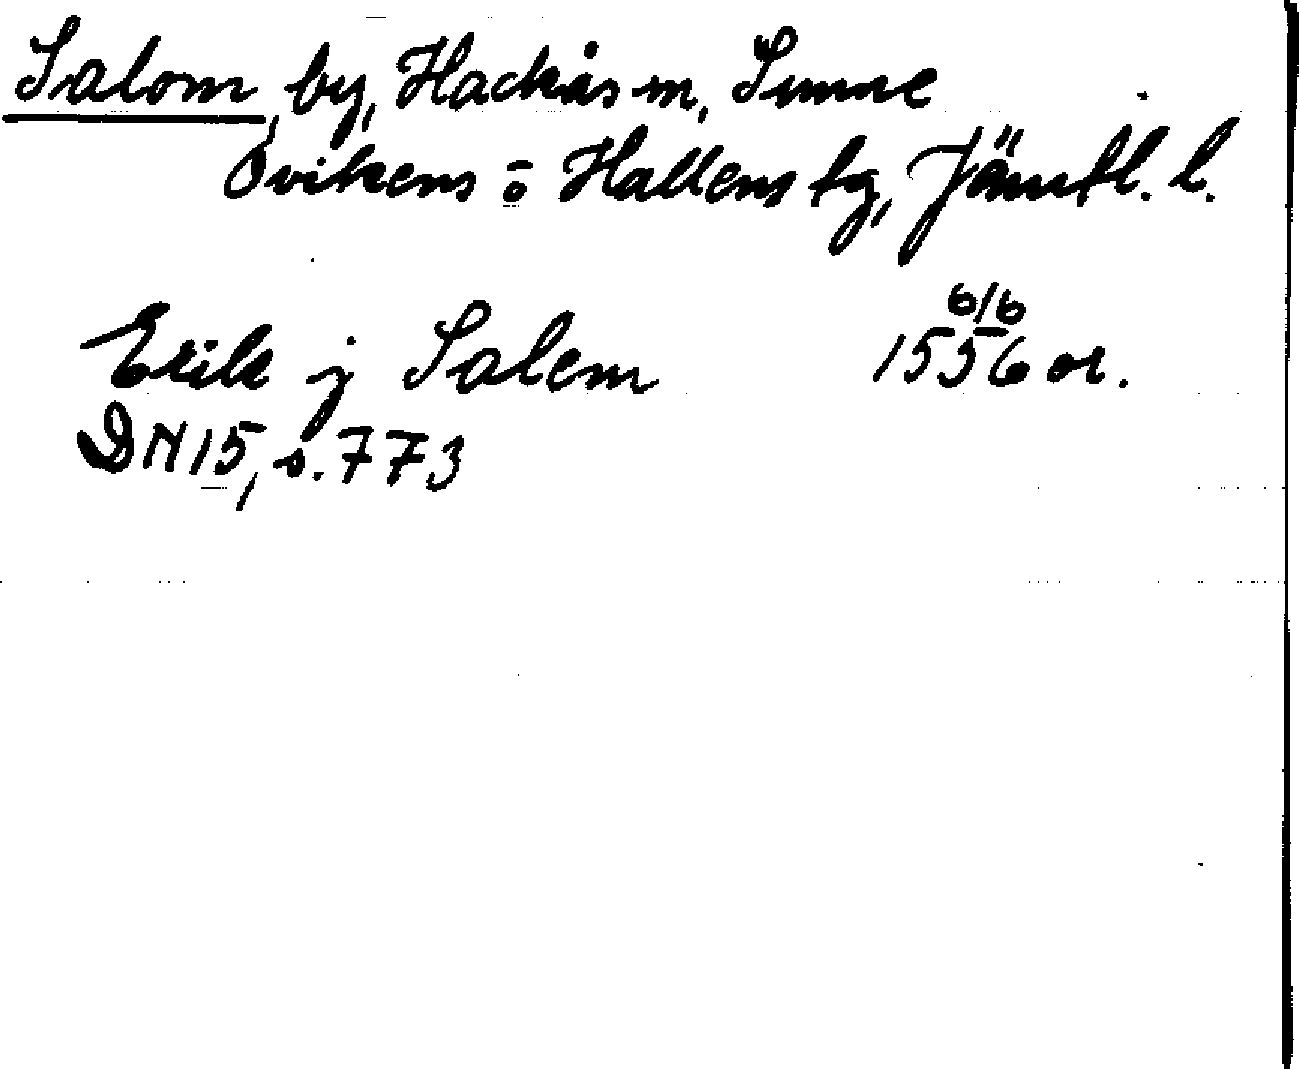 Salom, by, Hackås sn, Sunne
Ovikens o Hallens tg, Jämtl. l.
6/6
Erik j Salem 1556 or.
DN 15, s. 773